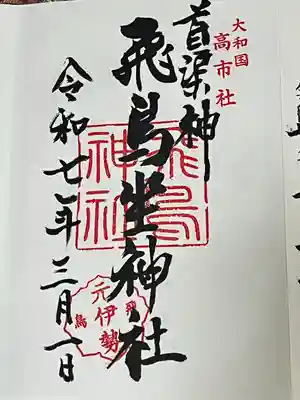 大和国
高市社
首渠神
飛鳥坐神社
令和七年三月一日
飛鳥
神社
飛鳥
元伊勢